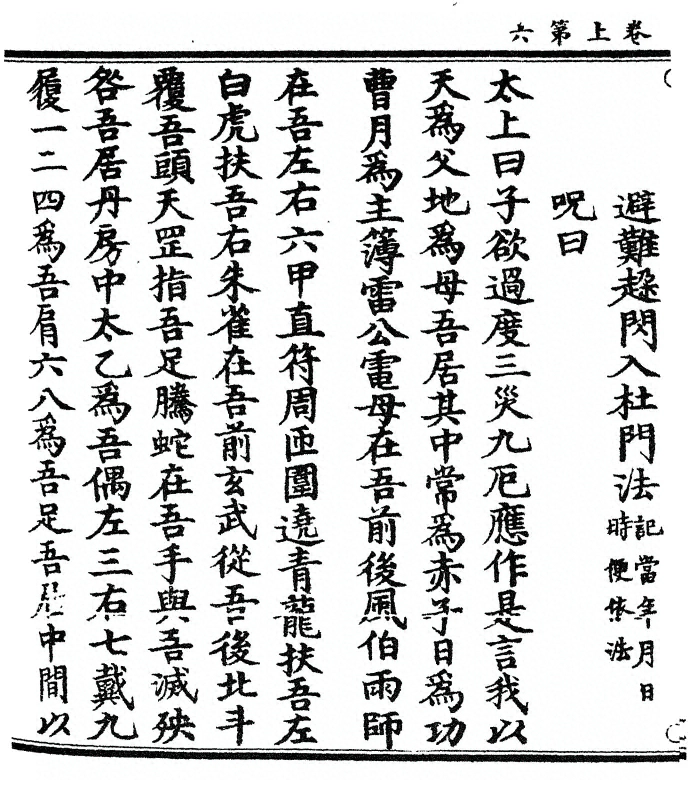 卷上第六
避難趂閃入杜門法記當年月日時便依法
呪曰
太上曰子欲過度三災九厄應作是言我以
天為父地為母吾居其中常為赤子日為功
曹月為主簿雷公電母在吾前後風伯雨師
在吾左右六甲直符周匝圍遶青龍扶吾左
白虎扶吾右朱雀在吾前玄武從吾後北斗
覆吾頭天罡指吾足騰蛇在吾手與吾滅殃
咎吾居丹房中太乙為吾偶左三右七戴九
履一二四為吾肩六八為吾足吾居中間以